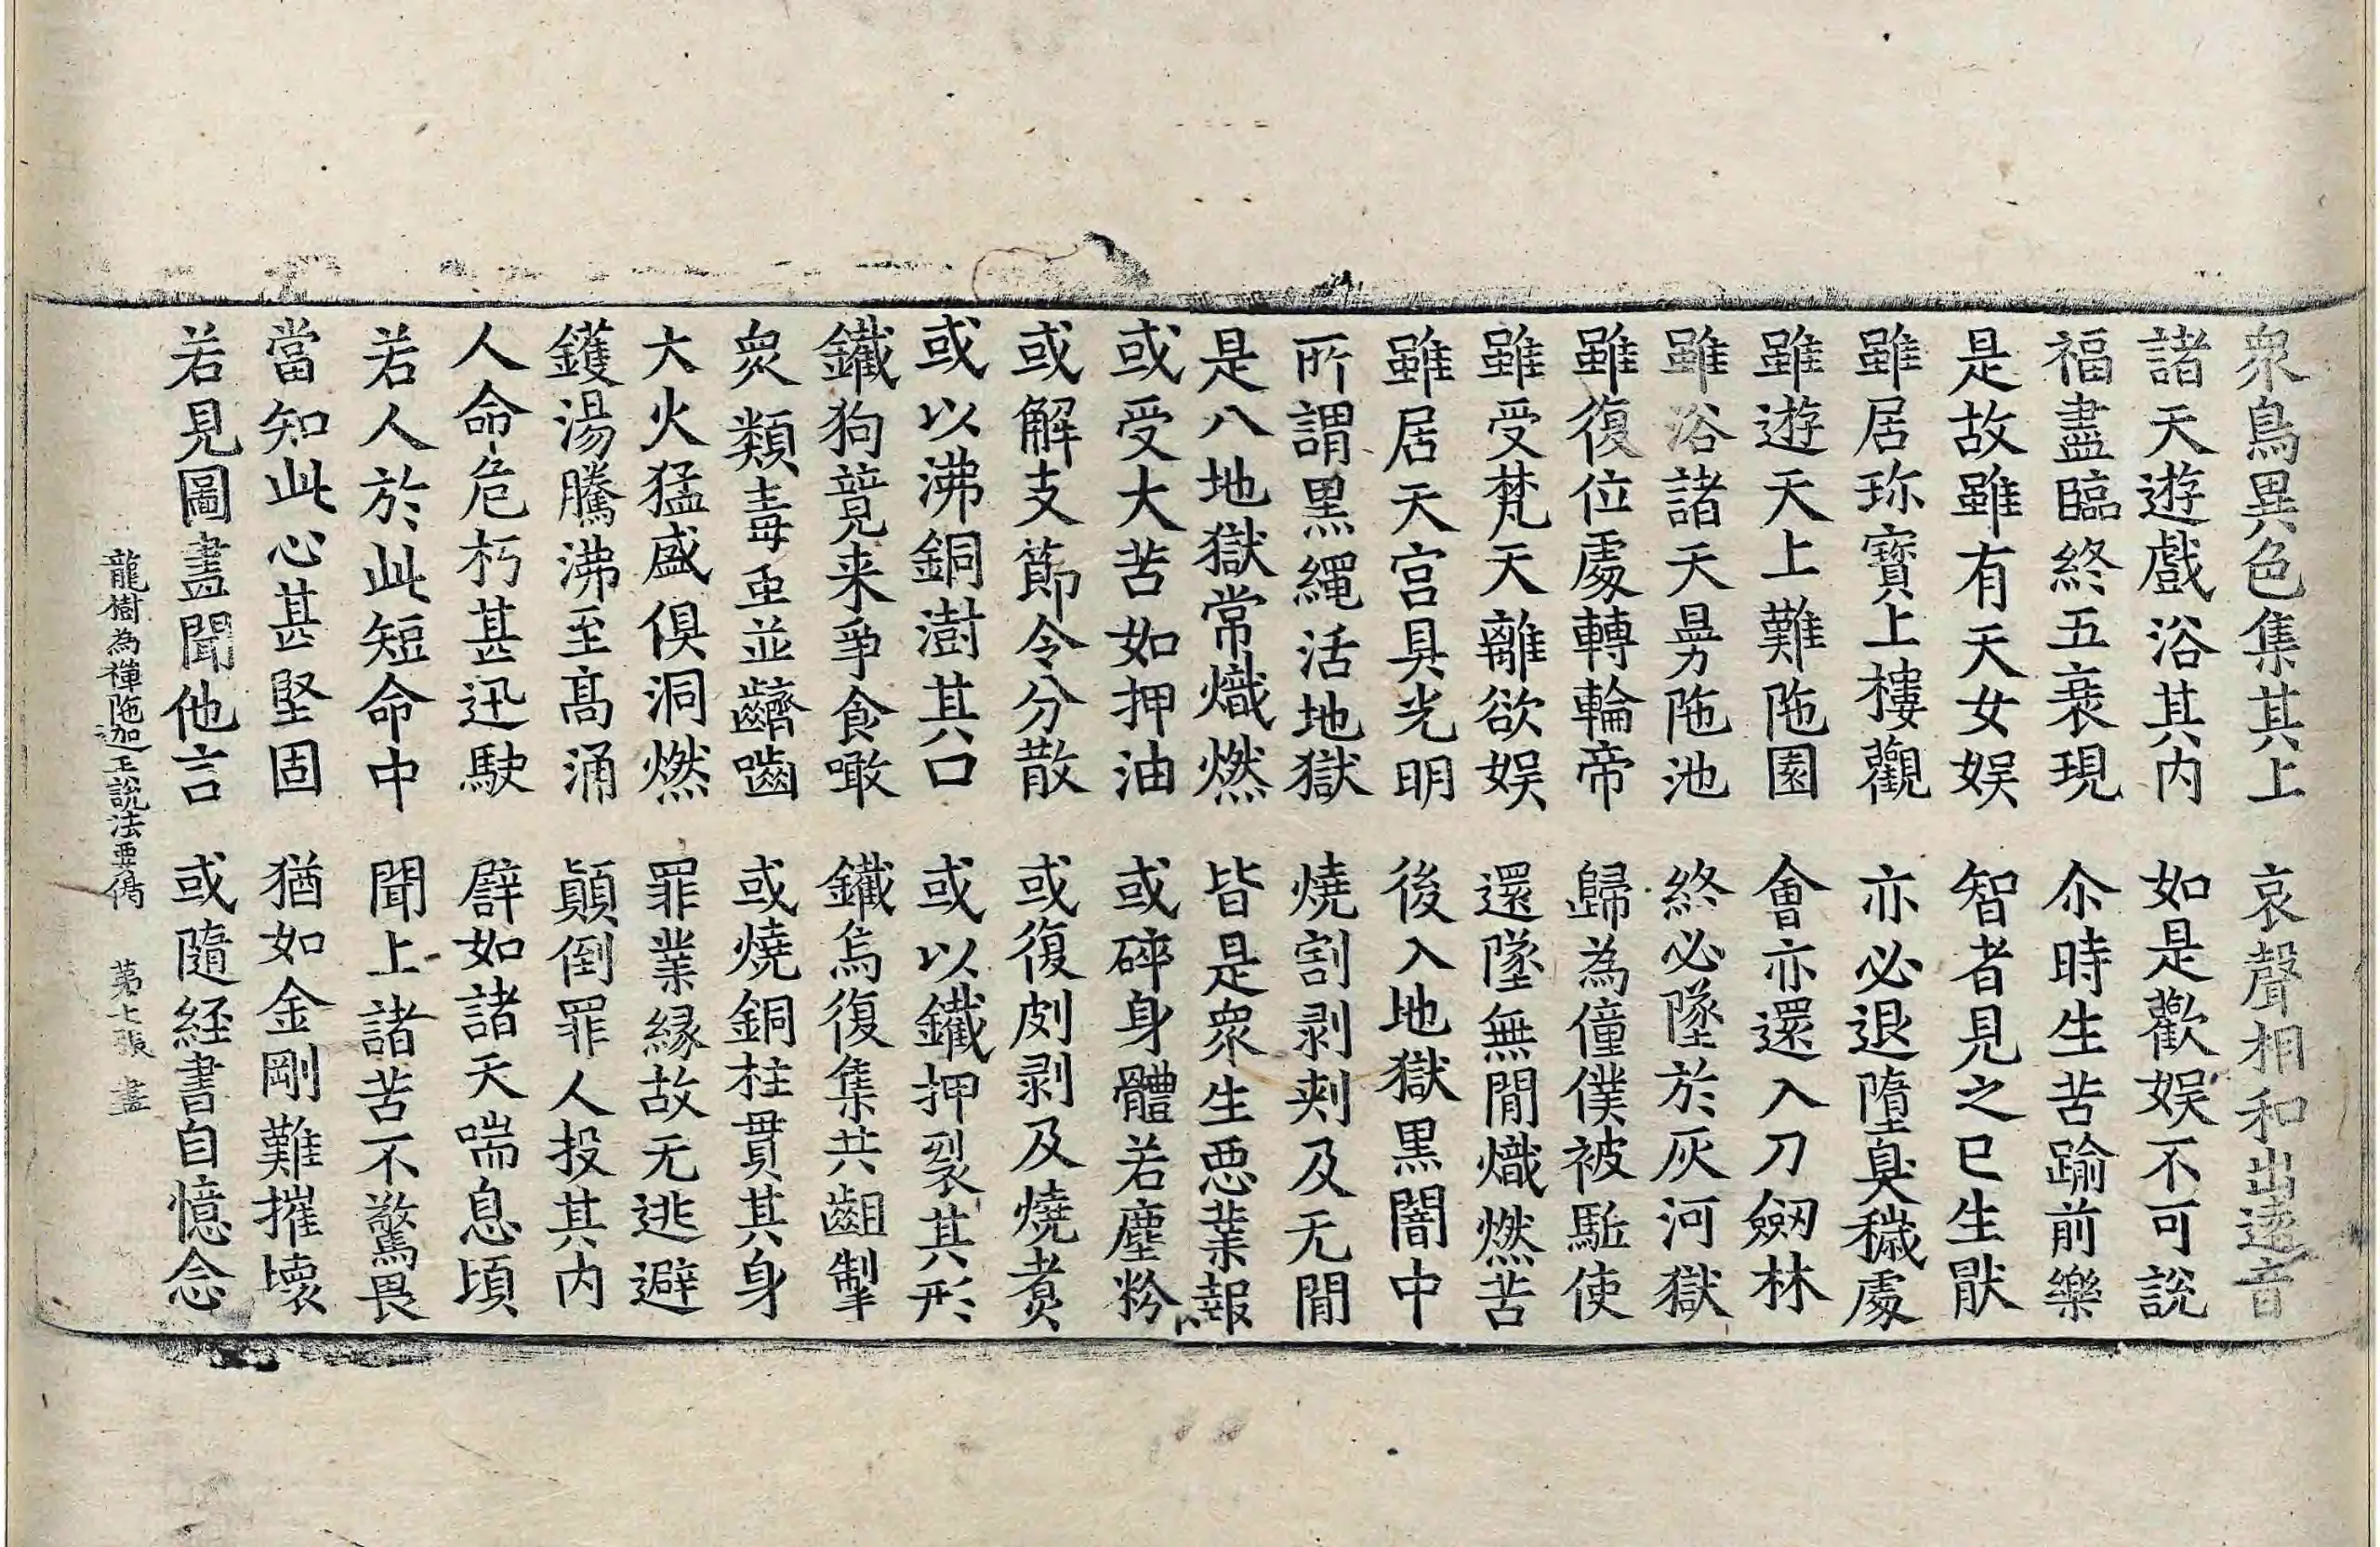 衆鳥異色集其上　哀聲相和出遠音
諸天遊戲浴其內　如是歡娛不可說
福盡臨終五衰現　尒時生苦踰前樂
是故雖有天女娛　智者見之已生猒
雖居珎寶上樓觀　亦必退墮臭穢處
雖遊天上難陁園　會亦還入刀劔林
雖浴諸天㬅陁池　終必墜於灰河獄
雖復位處轉輪帝　歸為僮僕被駈使
雖受梵天離欲娛　還墜無閒熾燃苦
雖居天宮具光明　後入地獄黒闇中
所謂黒繩活地獄　燒割剥刾及无閒
是八地獄常熾燃　皆是衆生惡業報
或受大苦如押油　或碎身體若塵粉
或解支節令分散　或復㓟剥及燒煑
或以沸銅澍其口　或以鐵押裂其形
鐵狗競来爭食噉　鐵烏復集共齟掣
衆類毒虫並齩嚙　或燒銅柱貫其身
大火猛盛俱洞燃　罪業緣故无逃避
鑊湯騰沸至高涌　顛倒罪人投其內
人命危朽甚迅駛　譬如諸天喘息頃
若人於此短命中　聞上諸苦不驚畏
當知此心甚堅固　猶如金剛難摧壞
若見圖畫聞他言　或隨經書自憶念
龍樹為禪陁迦王說法要偈　第七張　盡